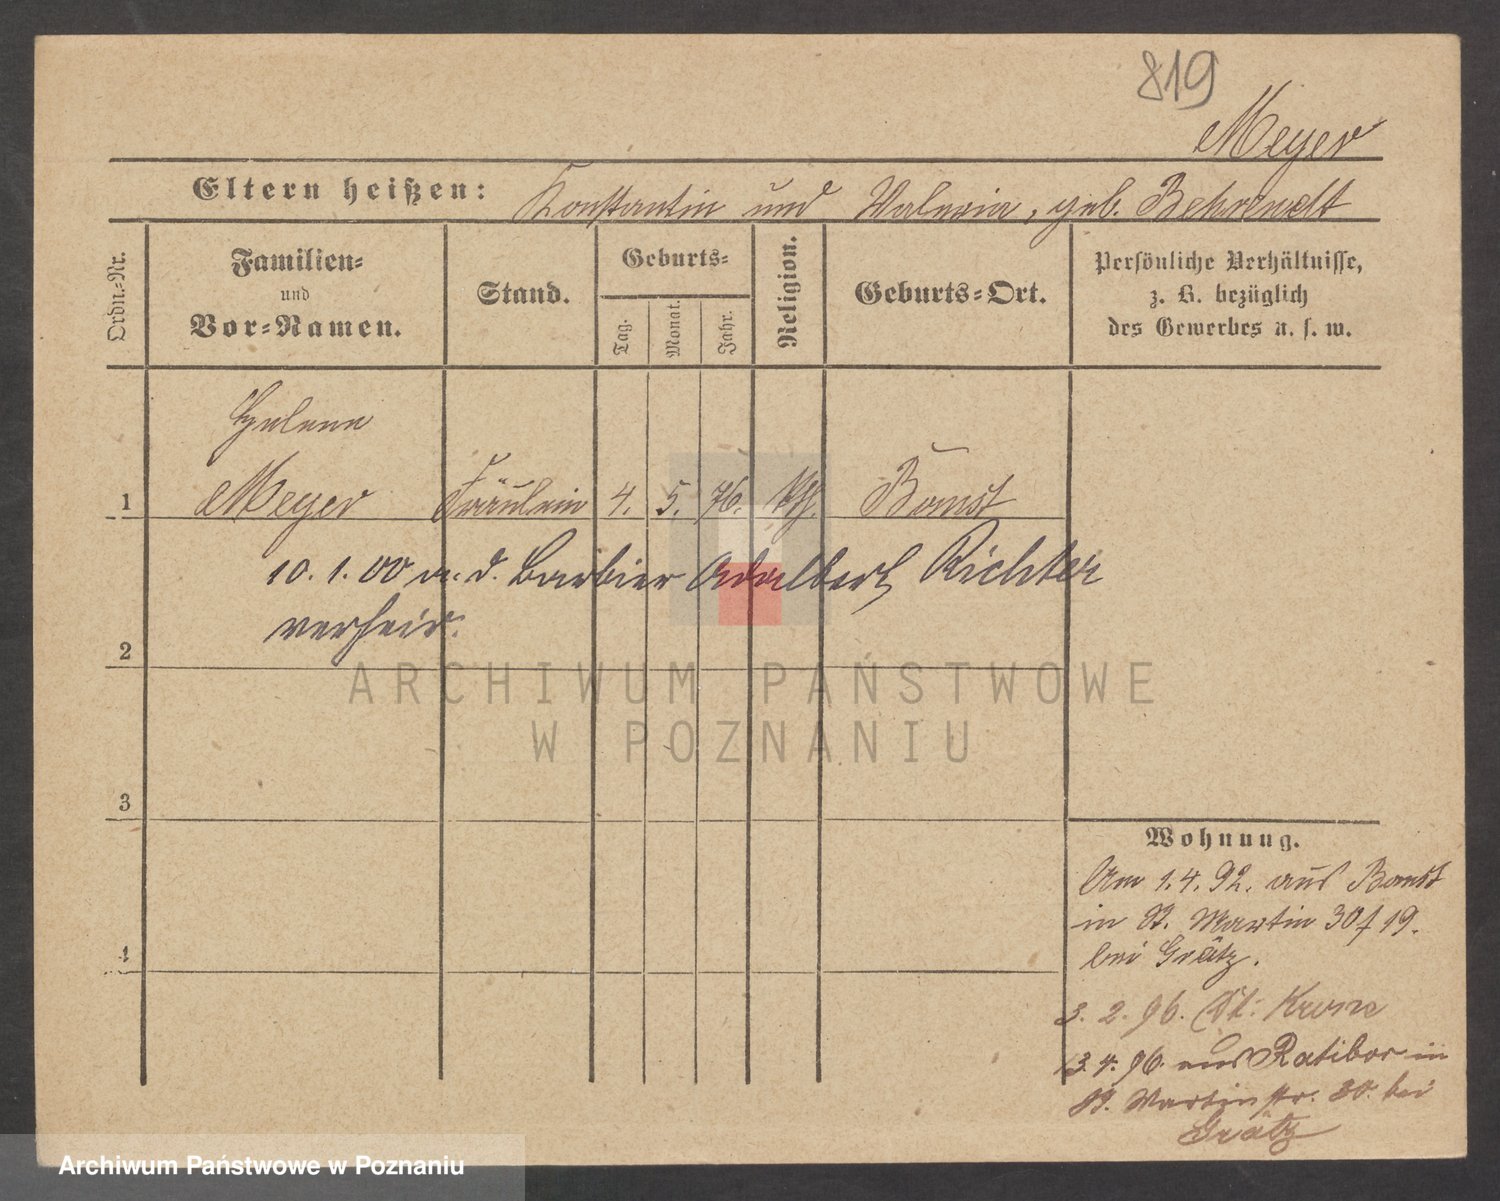 819
Meyer
Eltern heißen: Konstantin und Valeria, geb. Behrendt
Ordn.-Nr.
Familien-
und
Vor-Namen.
Stand.
Geburts-
Tag.
Monat.
Jahr.
Religion.
Geburts-Ort.
Persönliche Verhältnisse,
z. B. bezüglich
des Gewerbes u. s. w.
Helene
1 Meyer Fräulein 4. 5. 76. Bomst
10. 1. 00 m. d. Barbier Adalbert Richter
verheir.
2
3
4
Wohnung.
Am 1.4.92. aus Bomst
in St. Martin 30/19.
bei Grätz.
3. 2. 96. Dt. Krone
13. 4. 96. aus Ratibor in
St. Martinstr. 30. bei
Grätz
ARCHIWUM PAŃSTWOWE
W POZNANIU
Archiwum Państwowe w Poznaniu